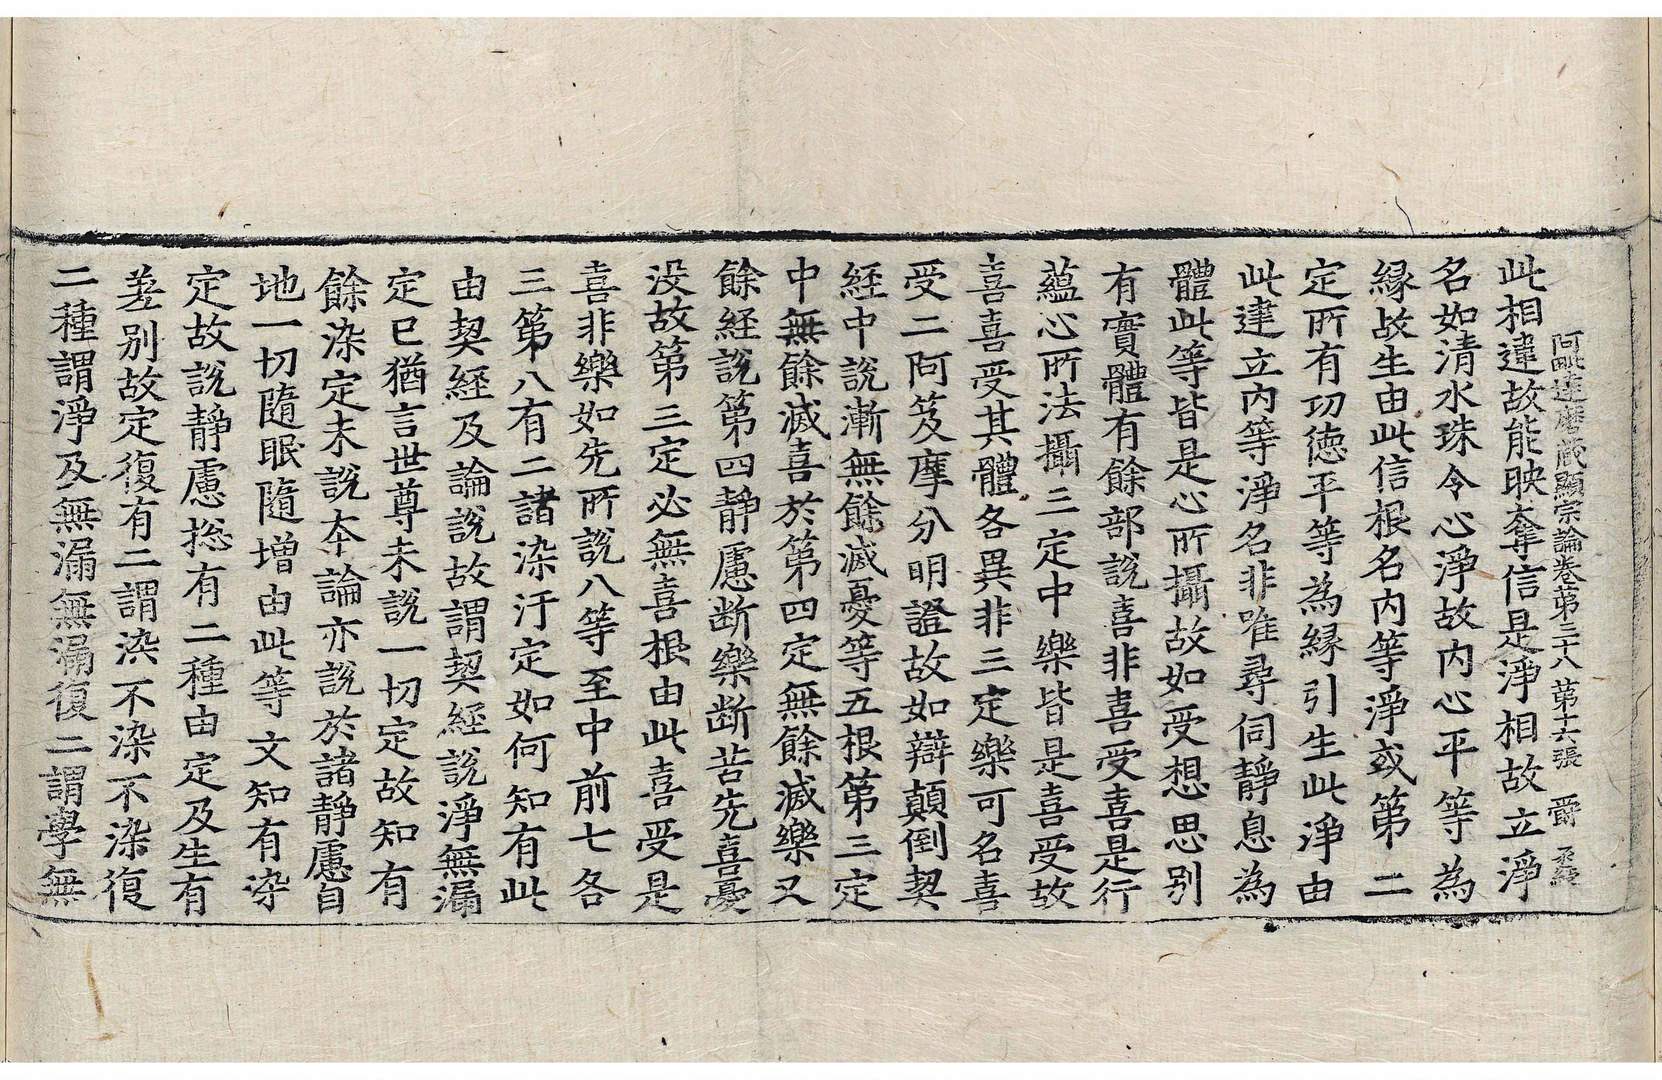 阿毗達磨藏顯宗論卷第三十八 第十六張 爵
此相違故能映奪信是淨相故立淨
名如清水珠令心淨故内心平等為
縁故生由此信根名内等淨或第二
定所有功徳平等為縁引生此淨由
此建立内等淨名非唯尋伺靜息為
體此等皆是心所攝故如受想思别
有實體有餘部說喜非喜受喜是行
蘊心所法攝三定中樂皆是喜受故
喜喜受其體各異非三定樂可名喜
受二阿笈摩分明證故如辯顛倒契
經中說漸無餘滅憂等五根第三定
中無餘滅喜於第四定無餘滅樂又
餘經說第四靜慮断樂断苦先喜憂
没故第三定必無喜根由此喜受是
喜非樂如先所說八等至中前七各
三第八有二諸染汙定如何知有此
由契經及論說故謂契經說淨無漏
定已猶言世尊未說一切定故知有
餘染定未說本論亦說於諸靜慮自
地一切隨眠隨增由此等文知有染
定故說靜慮捴有二種由定及生有
差别故定復有二謂染不染不染復
二種謂淨及無漏無漏復二謂學無